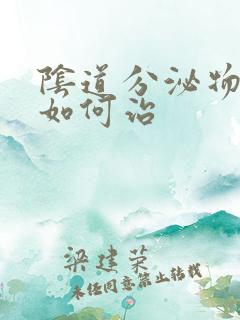 陰道分泌物
如何治
梁建荣
未经同意禁止转载